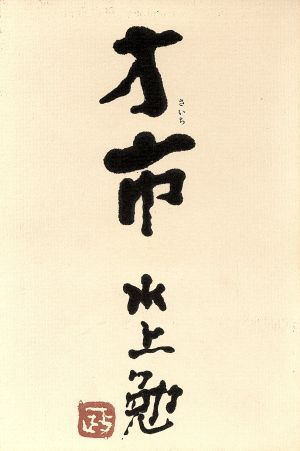 才市
さいち
水上勉